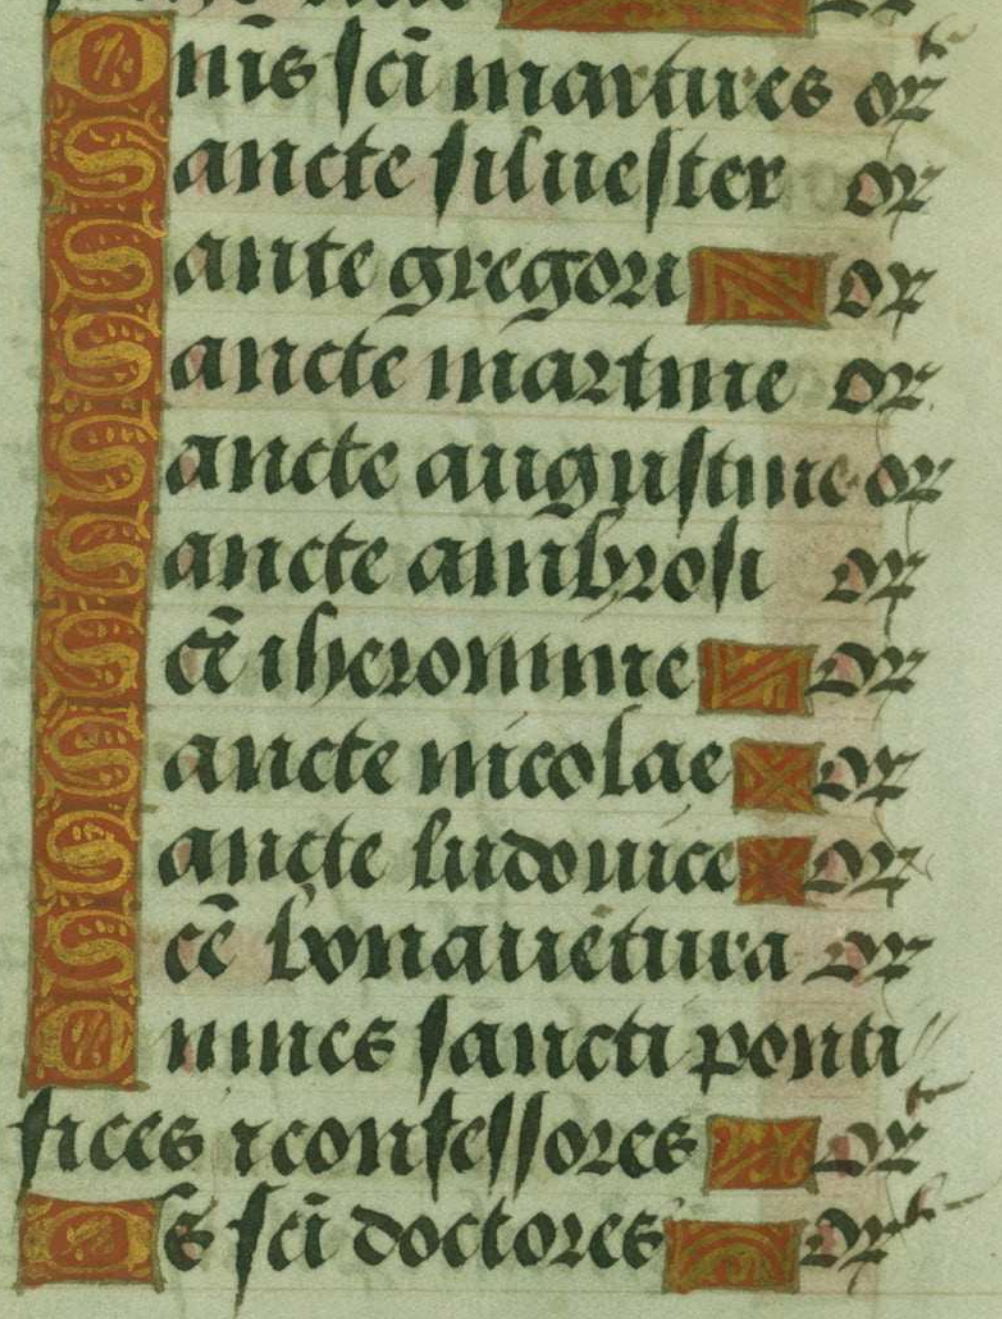 Onīs scī martires orᵗᵉ
Sancte silvester or
Sante gregori or
Sancte martine or
Sancte augustine or
Sancte ambrosi or
Scē iheronime or
Sancte nicolae or
Sancte ludovice or
Scē bonavētura or
Omnes sancti ponti//
fices ⁊ confessores orᵗᵉ
Os scī doctores orᵗᵉ